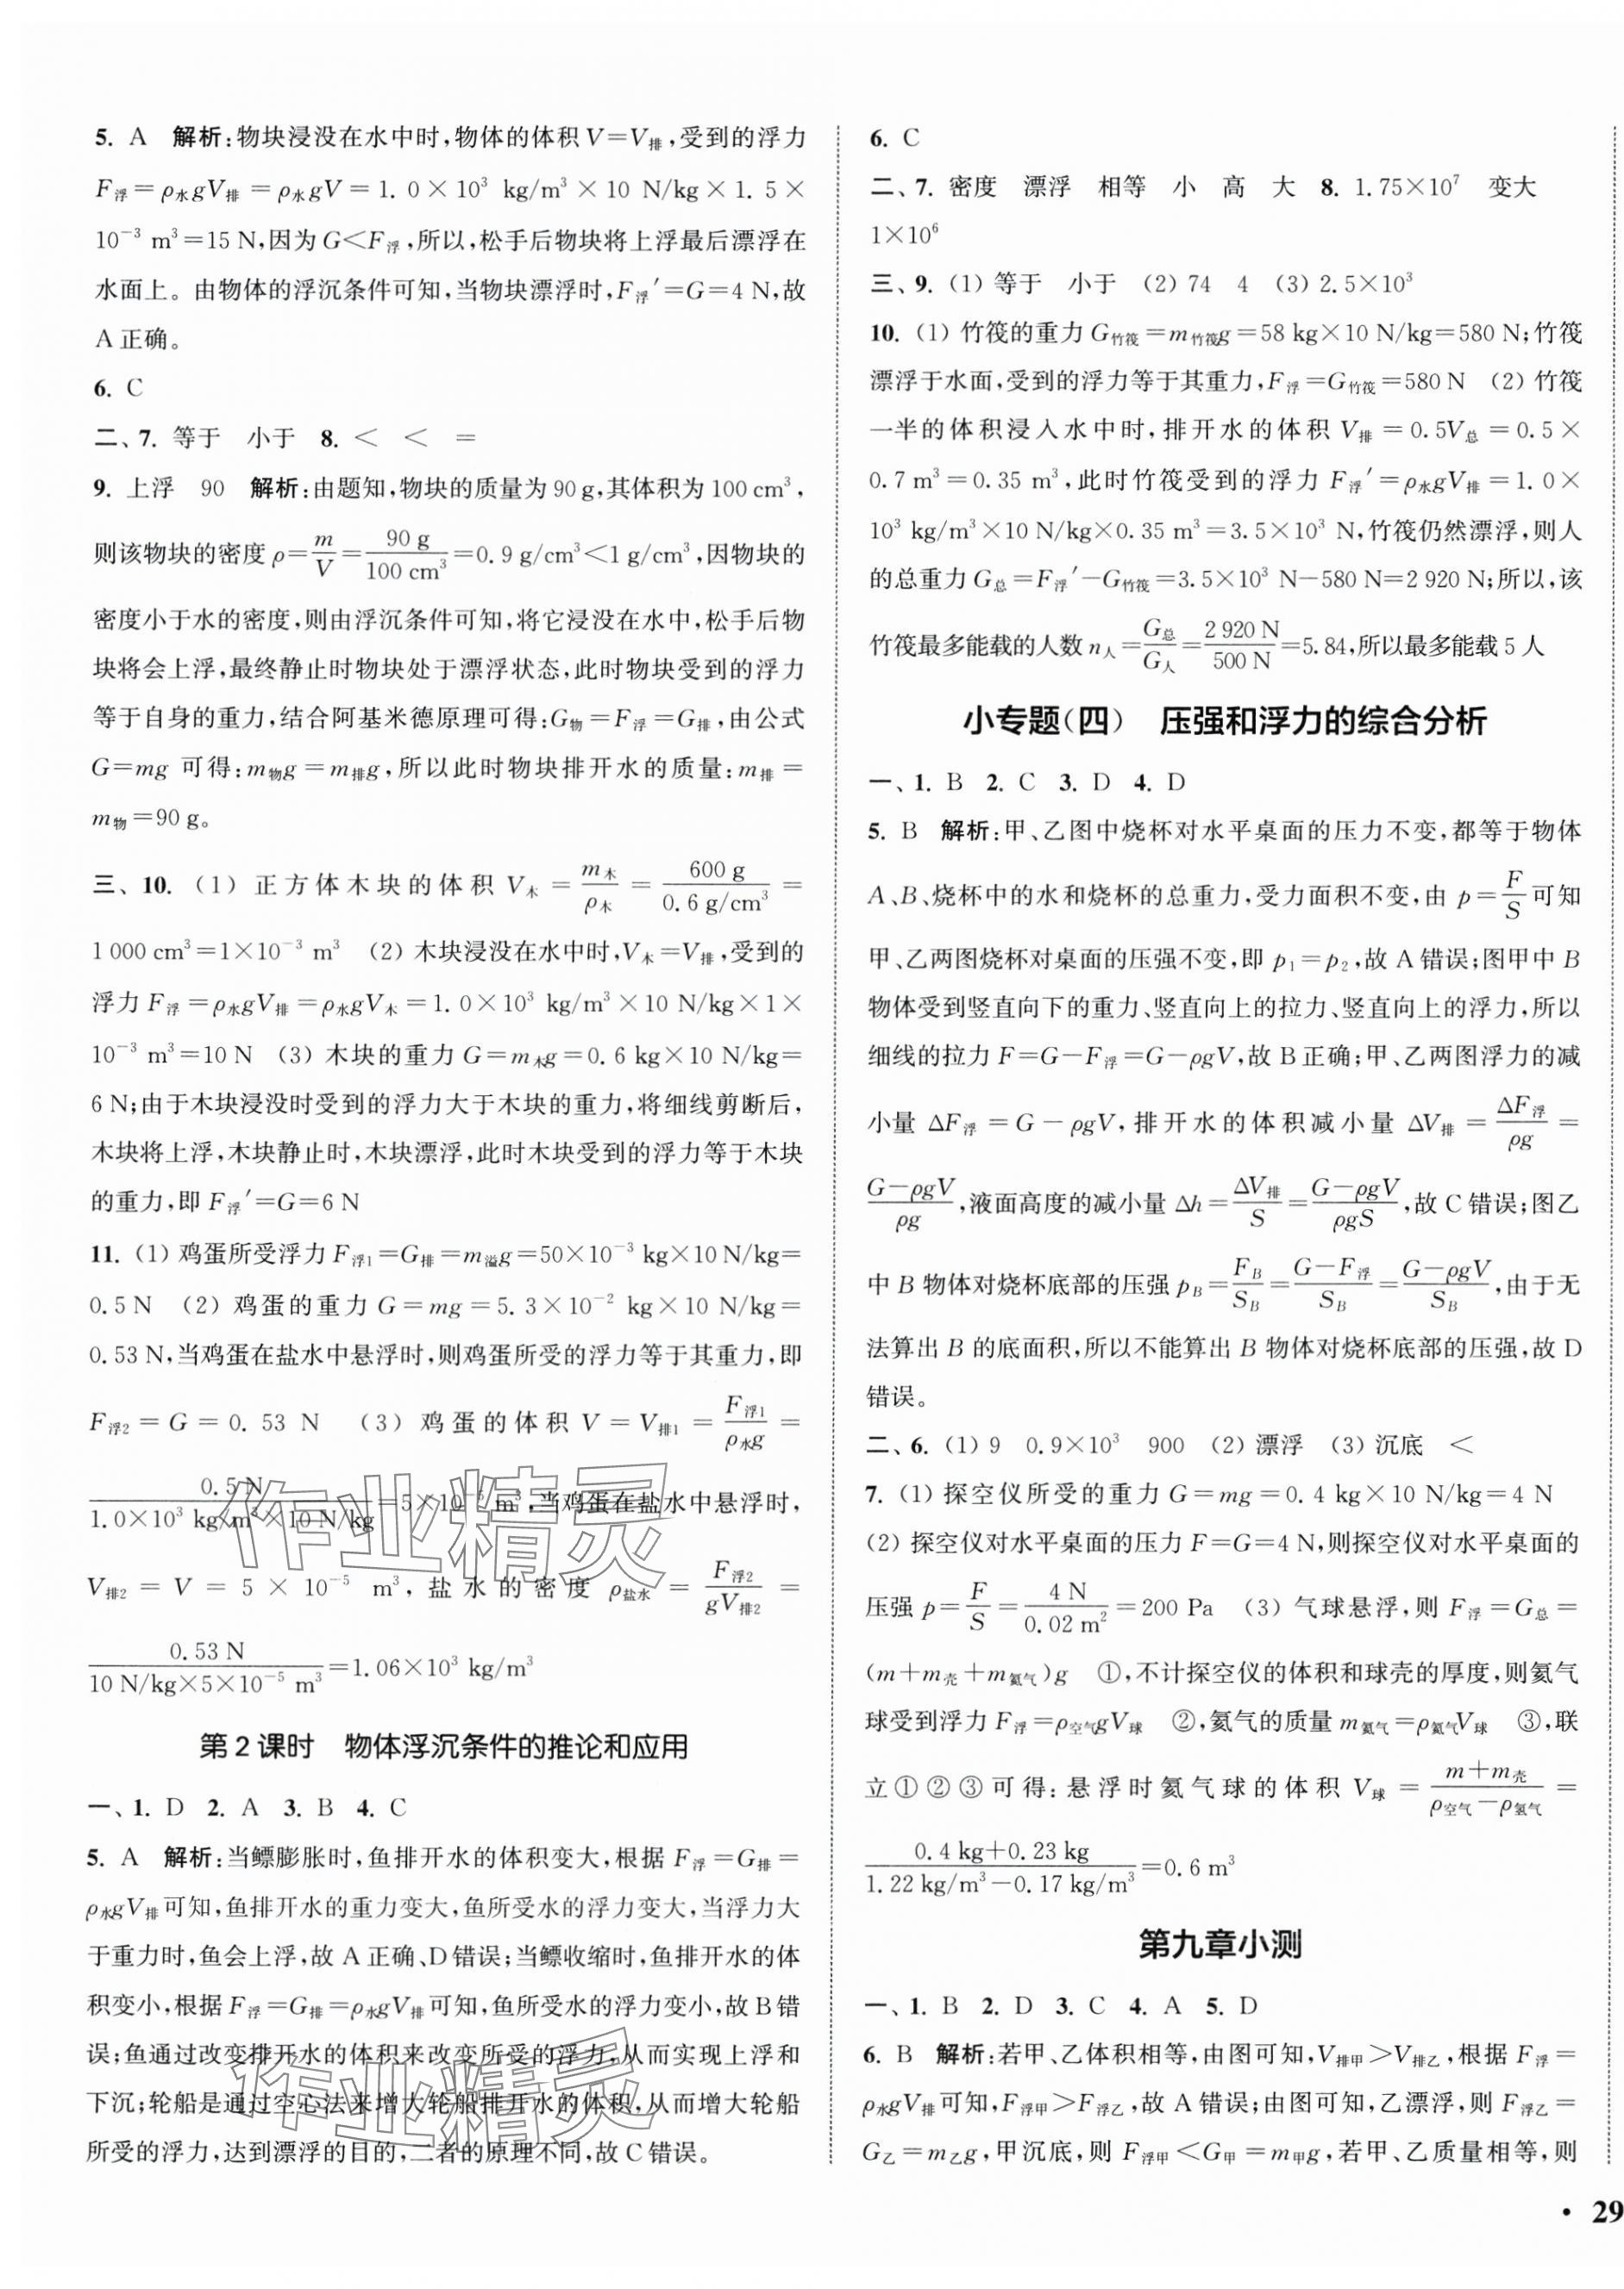 5. A 解析:物块浸没在水中时,物体的体积V=V排,受到的浮力
F浮=ρ水gV排=ρ水gV=1.0×10³ kg/m³×10 N/kg×1.5×
10⁻³ m³=15 N,因为G<F浮,所以,松手后物块将上浮最后漂浮在
水面上。由物体的浮沉条件可知,当物块漂浮时,F浮′=G=4 N,故
A正确。
6. C
二、7. 等于 小于 8. < < =
9. 上浮 90 解析:由题知,物块的质量为90 g,其体积为100 cm³,
则该物块的密度ρ=m/V=90 g/100 cm³=0.9 g/cm³<1 g/cm³,因物块的
密度小于水的密度,则由浮沉条件可知,将它浸没在水中,松手后物
块将会上浮,最终静止时物块处于漂浮状态,此时物块受到的浮力
等于自身的重力,结合阿基米德原理可得:G物=F浮=G排,由公式
G=mg 可得:m物g=m排g,所以此时物块排开水的质量:m排=
m物=90 g。
三、10. (1) 正方体木块的体积V木=m木/ρ木=600 g/0.6 g/cm³=
1 000 cm³=1×10⁻³ m³ (2) 木块浸没在水中时,V木=V排,受到的
浮力F浮=ρ水gV排=ρ水gV木=1.0×10³ kg/m³×10 N/kg×1×
10⁻³ m³=10 N (3) 木块的重力G=m木g=0.6 kg×10 N/kg=
6 N;由于木块浸没时受到的浮力大于木块的重力,将细线剪断后,
木块将上浮,木块静止时,木块漂浮,此时木块受到的浮力等于木块
的重力,即F浮′=G=6 N
11. (1) 鸡蛋所受浮力F浮1=G排=m溢g=50×10⁻³ kg×10 N/kg=
0.5 N (2) 鸡蛋的重力G=mg=5.3×10⁻² kg×10 N/kg=
0.53 N,当鸡蛋在盐水中悬浮时,则鸡蛋所受的浮力等于其重力,即
F浮2=G=0.53 N (3) 鸡蛋的体积V=V排1=F浮1/ρ水g=
0.5 N/1.0×10³ kg/m³×10 N/kg=5×10⁻⁵ m³,当鸡蛋在盐水中悬浮时,
V排2=V=5×10⁻⁵ m³,盐水的密度ρ盐水=F浮2/gV排2=
0.53 N/10 N/kg×5×10⁻⁵ m³=1.06×10³ kg/m³
第2课时 物体浮沉条件的推论和应用
一、1. D 2. A 3. B 4. C
5. A 解析:当鳔膨胀时,鱼排开水的体积变大,根据F浮=G排=
ρ水gV排可知,鱼排开水的重力变大,鱼所受水的浮力变大,当浮力大
于重力时,鱼会上浮,故A正确、D错误;当鳔收缩时,鱼排开水的体
积变小,根据F浮=G排=ρ水gV排可知,鱼所受水的浮力变小,故B错
误;鱼通过改变排开水的体积来改变所受的浮力,从而实现上浮和
下沉;轮船是通过空心法来增大轮船排开水的体积,从而增大轮船
所受的浮力,达到漂浮的目的,二者的原理不同,故C错误。
6. C
二、7. 密度 漂浮 相等 小 高 大 8. 1.75×10⁷ 变大
1×10⁶
三、9. (1) 等于 小于 (2) 74 4 (3) 2.5×10³
10. (1) 竹筏的重力G竹筏=m竹筏g=58 kg×10 N/kg=580 N;竹筏
漂浮于水面,受到的浮力等于其重力,F浮=G竹筏=580 N (2) 竹筏
一半的体积浸入水中时,排开水的体积V排=0.5V总=0.5×
0.7 m³=0.35 m³,此时竹筏受到的浮力F浮′=ρ水gV排=1.0×
10³ kg/m³×10 N/kg×0.35 m³=3.5×10³ N,竹筏仍然漂浮,则人
的总重力G总=F浮′-G竹筏=3.5×10³ N-580 N=2 920 N;所以,该
竹筏最多能载的人数n人=G总/G人=2 920 N/500 N=5.84,所以最多能载5人
小专题(四) 压强和浮力的综合分析
一、1. B 2. C 3. D 4. D
5. B 解析:甲、乙图中烧杯对水平桌面的压力不变,都等于物体
A、B、烧杯中的水和烧杯的总重力,受力面积不变,由p=F/S可知
甲、乙两图烧杯对桌面的压强不变,即p₁=p₂,故A错误;图甲中B
物体受到竖直向下的重力、竖直向上的拉力、竖直向上的浮力,所以
细线的拉力F=G-F浮=G-ρgV,故B正确;甲、乙两图浮力的减
小量ΔF浮=G-ρgV,排开水的体积减小量ΔV排=ΔF浮/ρg=
G-ρgV/ρg,液面高度的减小量Δh=ΔV排/S=G-ρgV/ρgS,故C错误;图乙
中B物体对烧杯底部的压强pB=FB/SB=G-F浮/SB=G-ρgV/SB,由于无
法算出B的底面积,所以不能算出B物体对烧杯底部的压强,故D
错误。
二、6. (1) 9 0.9×10³ 900 (2) 漂浮 (3) 沉底 <
7. (1) 探空仪所受的重力G=mg=0.4 kg×10 N/kg=4 N
(2) 探空仪对水平桌面的压力F=G=4 N,则探空仪对水平桌面的
压强p=F/S=4 N/0.02 m²=200 Pa (3) 气球悬浮,则F浮=G总=
(m+m壳+m氦气)g ①,不计探空仪的体积和球壳的厚度,则氦气
球受到浮力F浮=ρ空气gV球 ②,氦气的质量m氦气=ρ氦气V球 ③,联
立①②③可得:悬浮时氦气球的体积V球=m+m壳/ρ空气-ρ氢气=
0.4 kg+0.23 kg/1.22 kg/m³-0.17 kg/m³=0.6 m³
第九章小测
一、1. B 2. D 3. C 4. A 5. D
6. B 解析:若甲、乙体积相等,由图可知,V排甲>V排乙,根据F浮=
ρ水gV排可知,F浮甲>F浮乙,故A错误;由图可知,乙漂浮,则F浮乙=
G乙=m乙g,甲沉底,则F浮甲<G甲=m甲g,若甲、乙质量相等,则
· 29
作业精灵
作业精灵